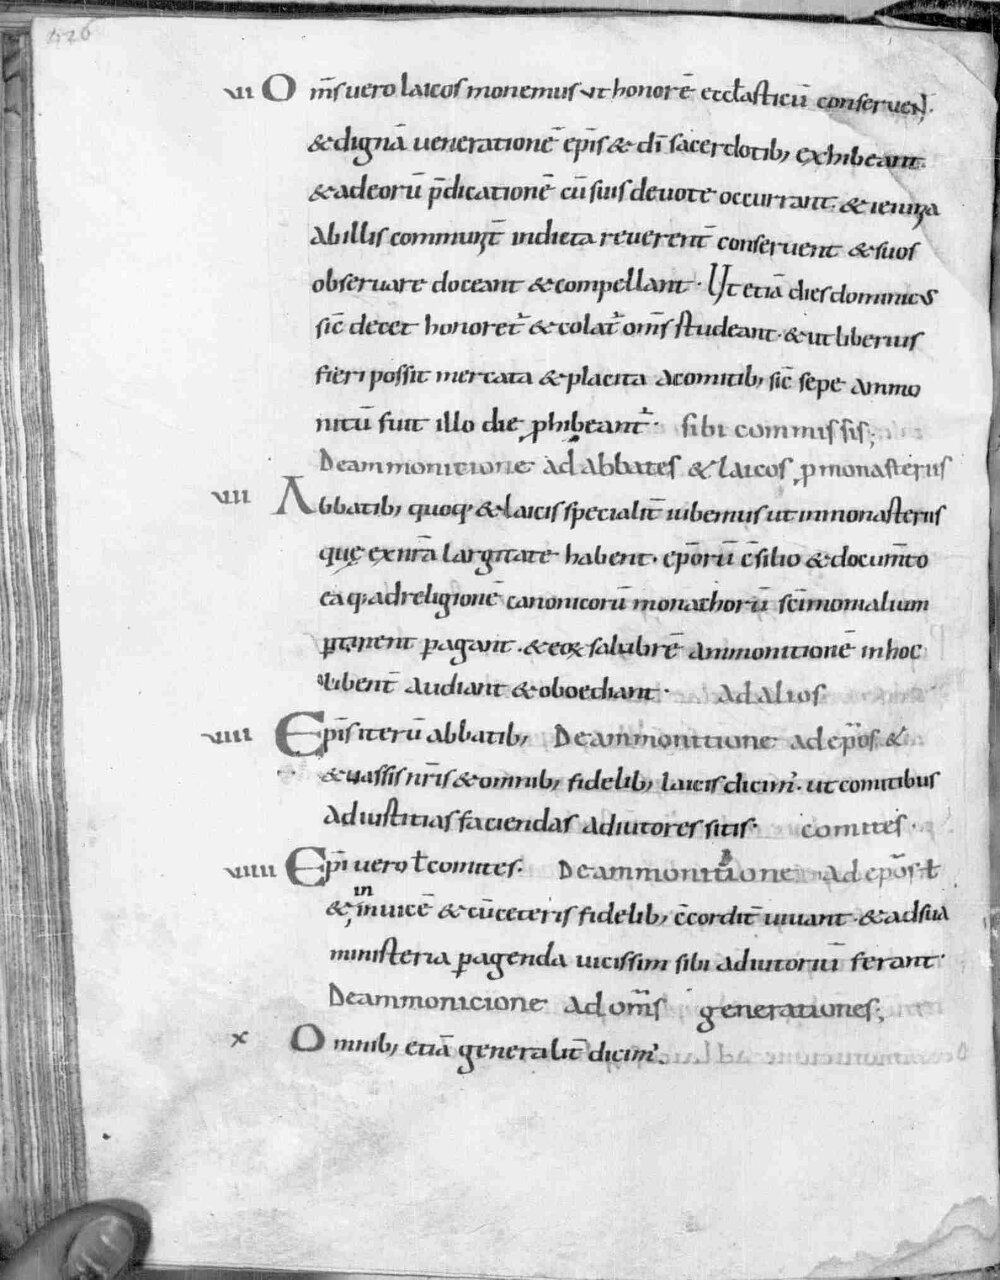 426
VII Om̅s uero laicos monemus ut honorē eccl̅asticū conseruen̄.
& dignā uenerationē ep̅is & dī sacerdotib; exhibeant.
& ad eorū p̄dicationē cū suis deuote occurrant. & ieiunia
ab illis commun̄t indicta reuerent̄ conseruent & suos
obseruare doceant & compellant. Ut etiā dies dominicus
sic̄ decet honoret᷑ & colat᷑ om̅s studeant. & ut liberius
fieri possit mercata & placita a comitib; sic̄ sepe ammo
nitū fuit illo die ꝓhibeant᷑. sibi commissis;
De ammonicione ad abbates & laicos, ꝓ monasteriis
VII Abbatib; quoq; & laicis specialit̄ iubemus ut in monasteriis
quę ex nr̄a largitate habent. ep̅orū c̄silio & docum̄to
ea q; ad religionē canonicorū monachorū sc̄imonialium
ꝑtinent ꝑagant. & eoꝝ salubrē ammonitionē in hoc
libent̄ audiant & oboediant. ad alios
VIII Ep̅is iterū abbatib; De ammonitione ad ep̅os &
& uassis nr̄is & omnib; fidelib; laicis dicim᷑. ut comitibus
ad iustitias faciendas adiutores sitis. comites.
VIIII Ep̅i uero ł comites. De ammonitione ad ep̅os ł
&, in inuicē & cū ceteris fidelib; c̄cordit̄ uiuant. & ad sua
ministeria ꝑagenda uicissim sibi adiutoriū ferant.
De ammonicione ad om̅s generationes;
X Omnib; etiā generalit̄ dicim᷑.